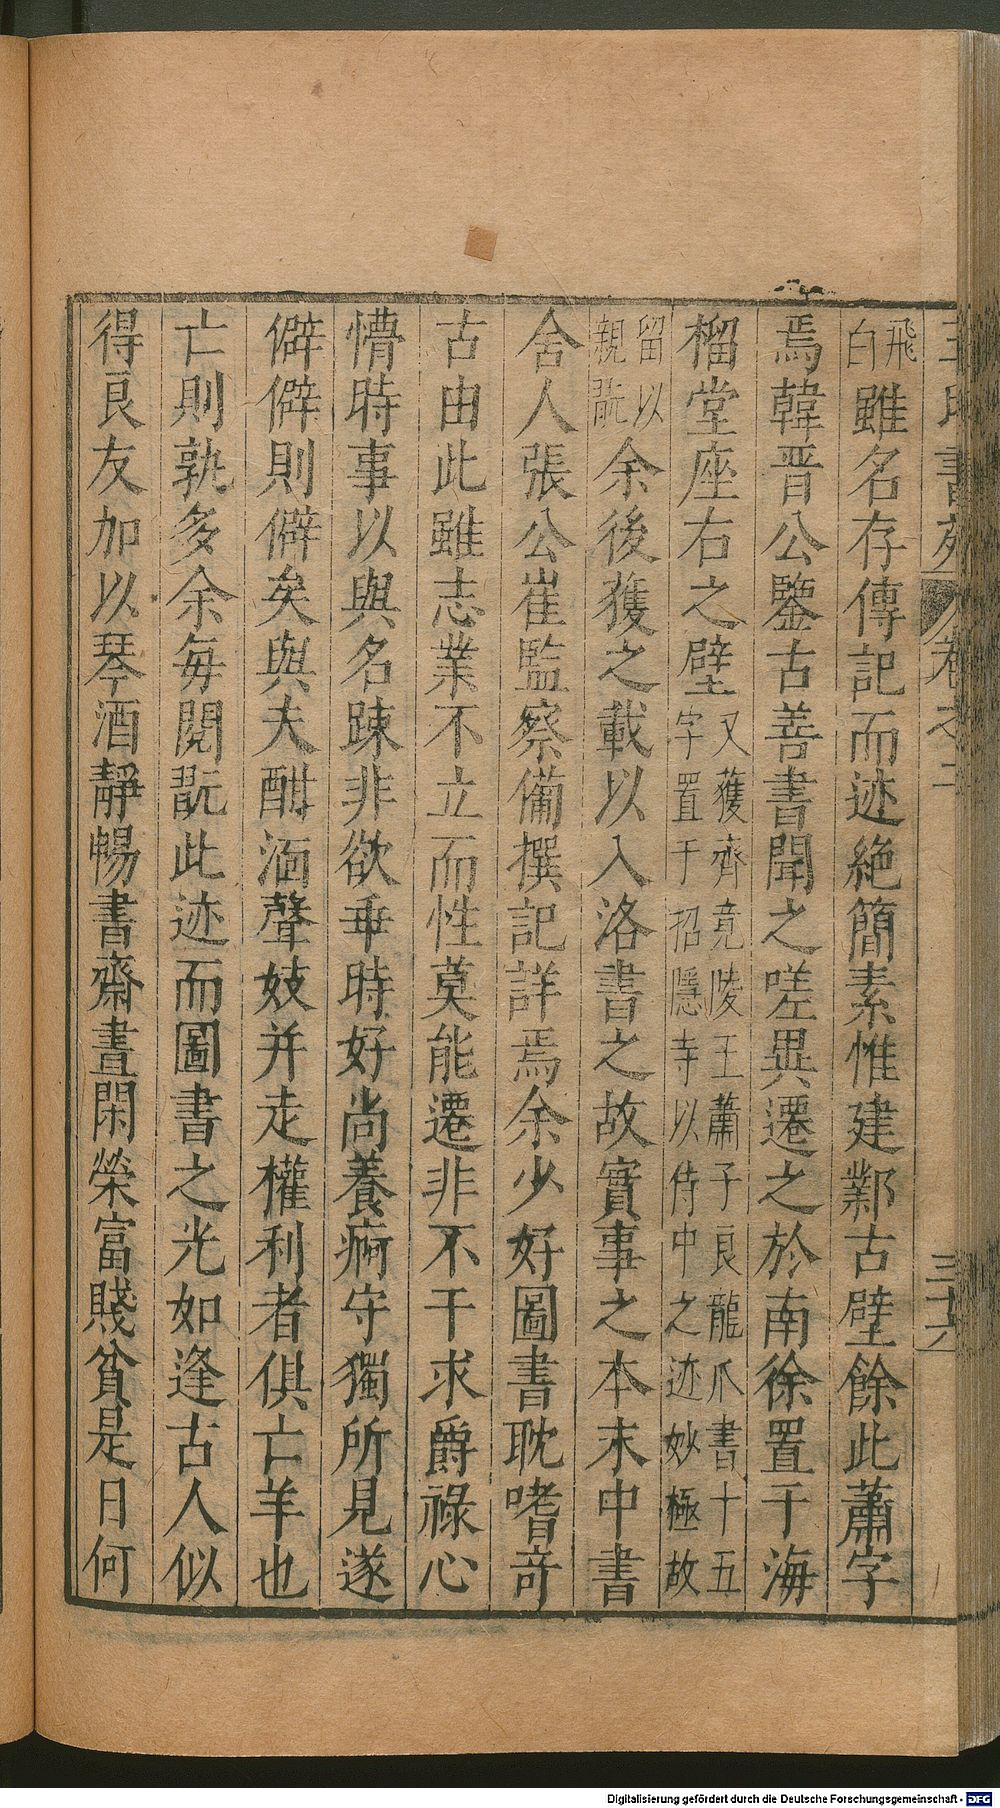 王氏書苑 卷之二 三十六
飛白雖名存傳記而迹絶簡素惟建鄴古壁餘此蕭字
焉韓晋公鑒古善書聞之嗟異遷之於南徐置于海
榴堂座右之壁又獲齊竟陵王蕭子良龍爪書十五字置于招隱寺以侍中之迹妙極故
留以親翫余後獲之載以入洛書之故實事之本末中書
舍人張公崔監察備撰記詳焉余少好圖書耽嗜奇
古由此雖志業不立而性莫能遷非不干求爵祿心
懵時事以與名踈非欲乖時好尚養痾守獨所見遂
僻僻則僻矣與夫酣湎聲妓并走權利者俱亡羊也
亡則孰多余每閱翫此迹而圖書之光如逢古人似
得良友加以琴酒靜暢書齋晝閑榮富賤貧是日何
Digitalisierung gefördert durch die Deutsche Forschungsgemeinschaft - DFG